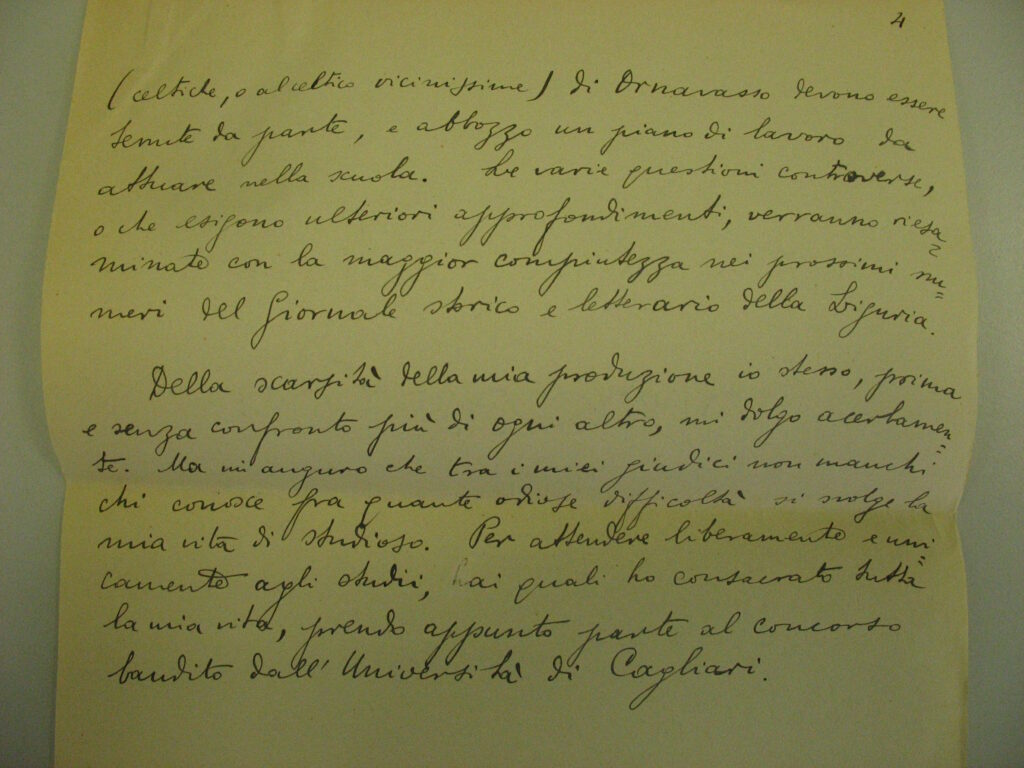 4
(celtiche, o al celtico vicinissime) di Ornavasso devono essere
tenute da parte, e abbozzo un piano di lavoro da
attuare nella scuola. Le varie questioni controverse,
o che esigono ulteriori approfondimenti, verranno riesa=
minate con la maggior compiutezza nei prossimi nu=
meri del Giornale storico e letterario della Liguria.
Della scarsità della mia produzione io stesso, prima
e senza confronto più di ogni altro, mi dolgo acerbamen=
te. Ma mi auguro che tra i miei giudici non manchi
chi conosce fra quante odiose difficoltà si svolge la
mia vita di studioso. Per attendere liberamente e uni=
camente agli studii, ai quali ho consacrato tutta
la mia vita, prendo appunto parte al concorso
bandito dall'Università di Cagliari.